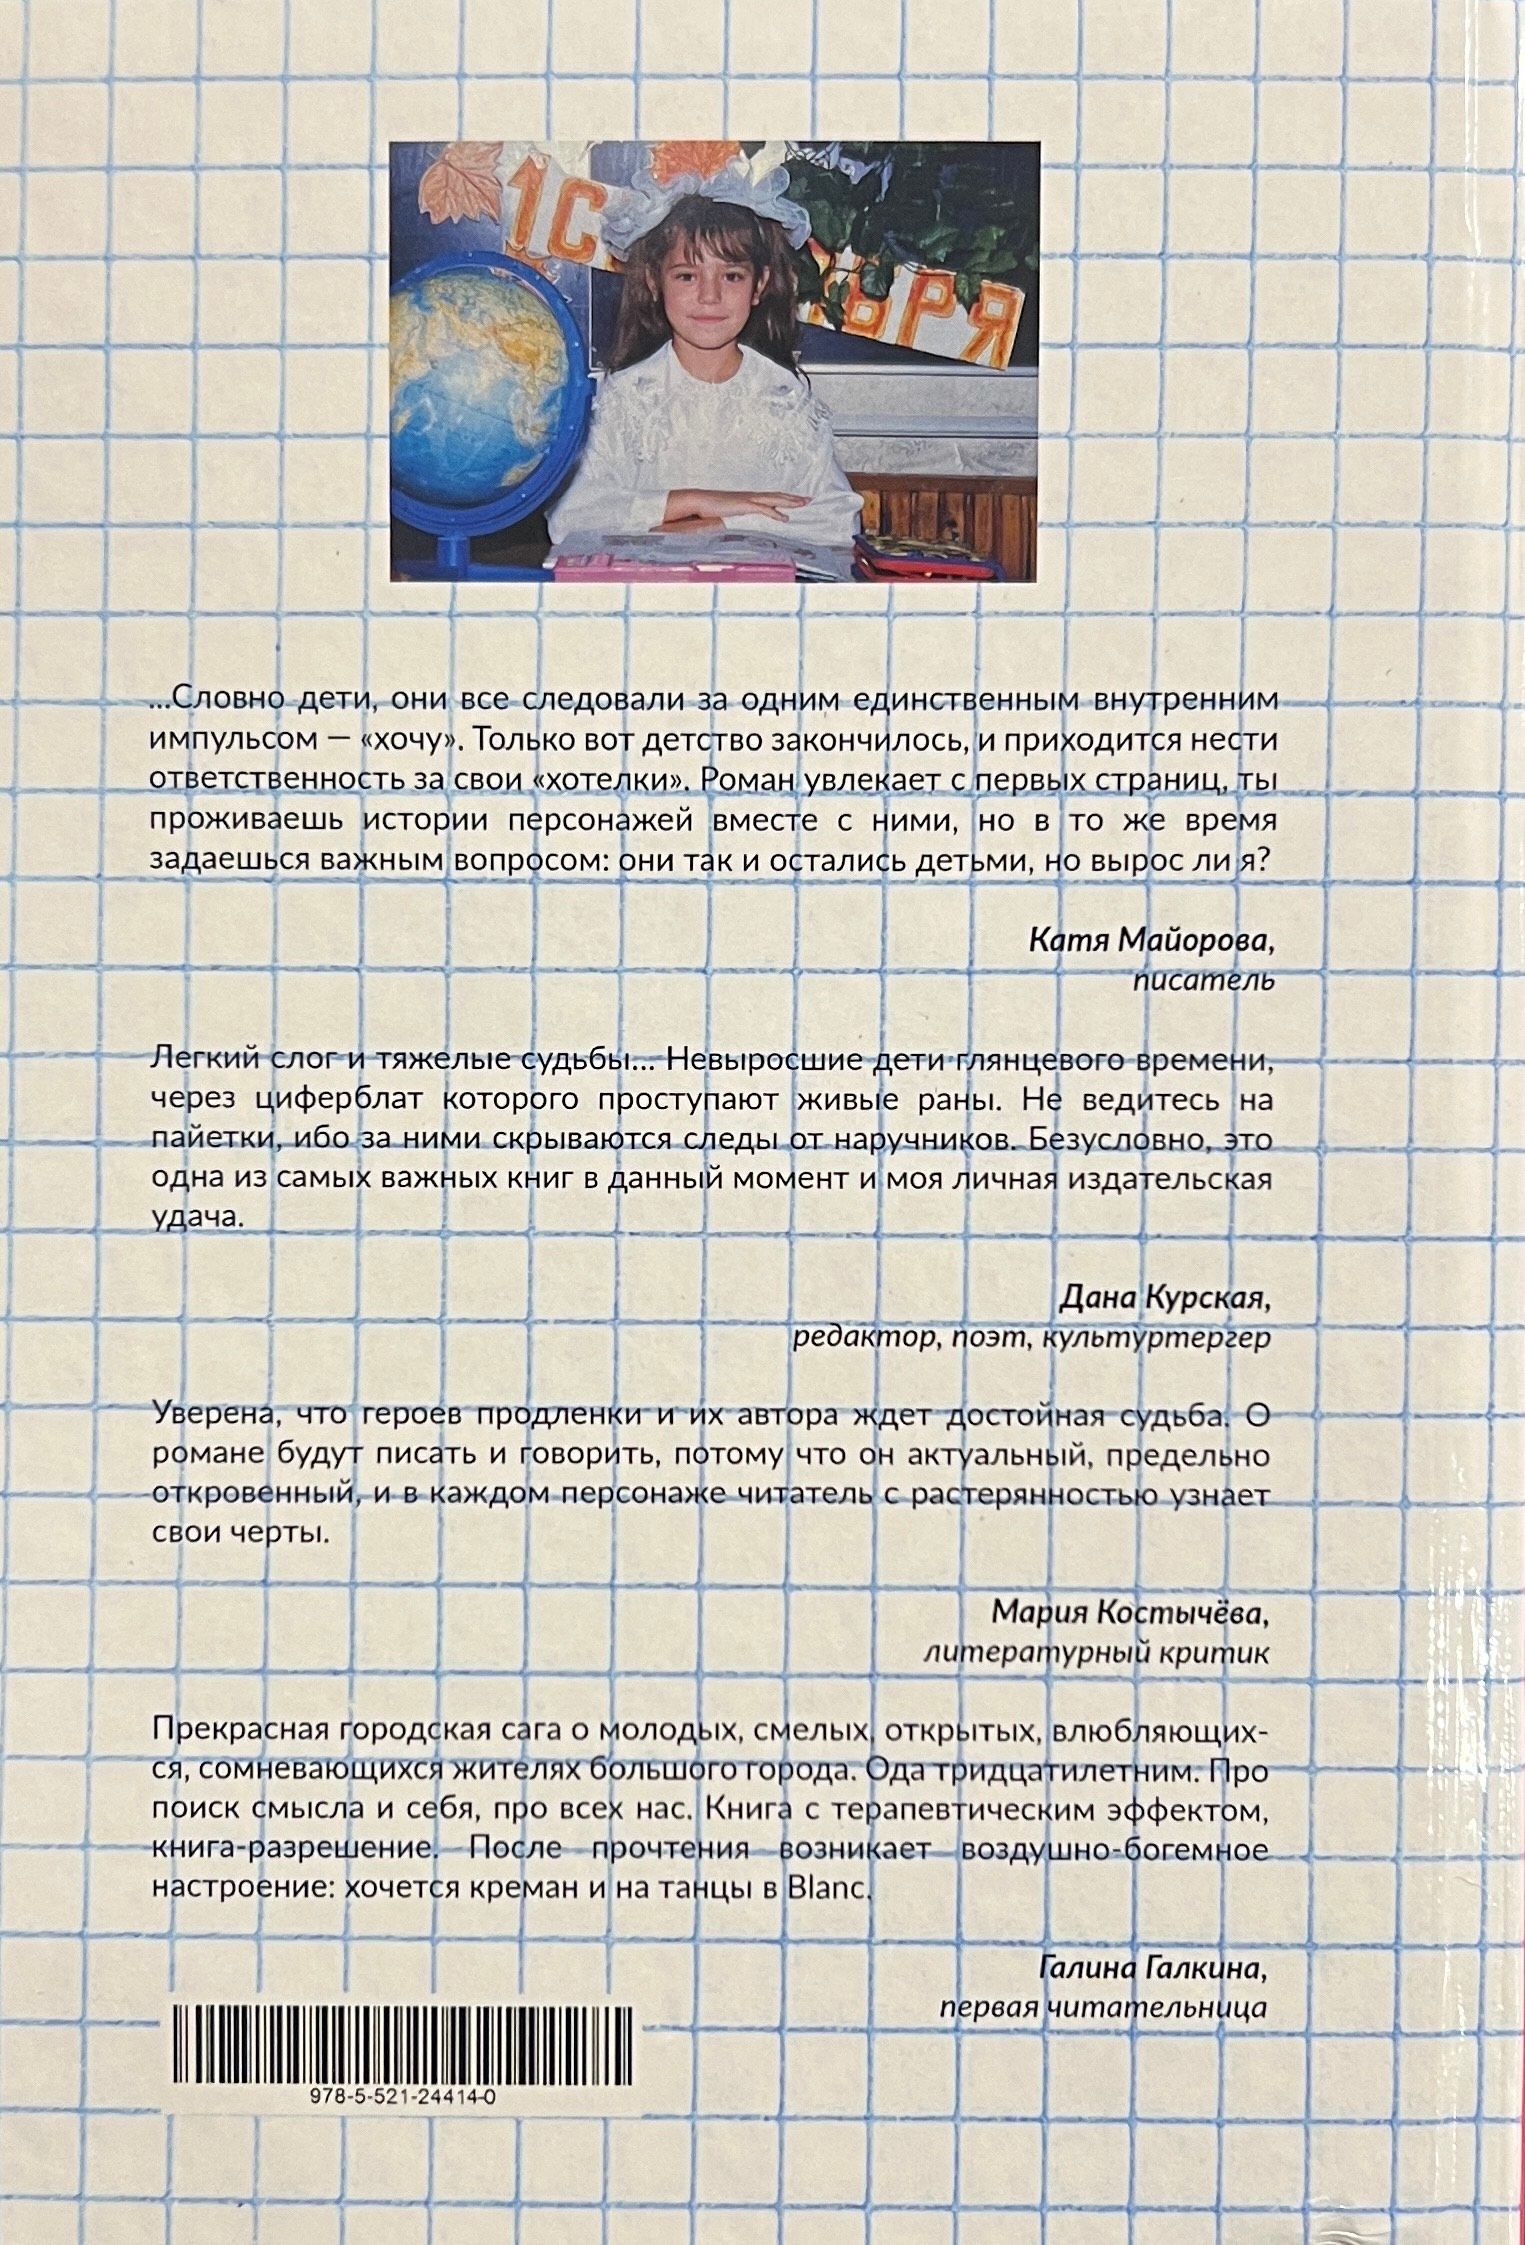 1 С
ЬРЯ
...Словно дети, они все следовали за одним единственным внутренним
импульсом — «хочу». Только вот детство закончилось, и приходится нести
ответственность за свои «хотелки». Роман увлекает с первых страниц, ты
проживаешь истории персонажей вместе с ними, но в то же время
задаешься важным вопросом: они так и остались детьми, но вырос ли я?
Катя Майорова,
писатель
Легкий слог и тяжелые судьбы... Невыросшие дети глянцевого времени,
через циферблат которого проступают живые раны. Не ведитесь на
пайетки, ибо за ними скрываются следы от наручников. Безусловно, это
одна из самых важных книг в данный момент и моя личная издательская
удача.
Дана Курская,
редактор, поэт, культуртергер
Уверена, что героев продленки и их автора ждет достойная судьба. О
романе будут писать и говорить, потому что он актуальный, предельно
откровенный, и в каждом персонаже читатель с растерянностью узнает
свои черты.
Мария Костычёва,
литературный критик
Прекрасная городская сага о молодых, смелых, открытых, влюбляющих-
ся, сомневающихся жителях большого города. Ода тридцатилетним. Про
поиск смысла и себя, про всех нас. Книга с терапевтическим эффектом,
книга-разрешение. После прочтения возникает воздушно-богемное
настроение: хочется креман и на танцы в Blanc.
Галина Галкина,
первая читательница
978-5-521-24414-0